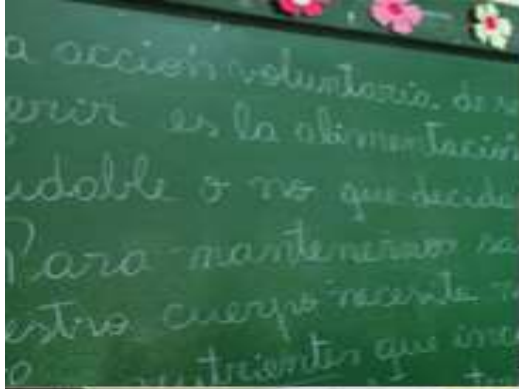 a acción voluntaria. de se
erir es la alimentación
udable o no que decida
Para mantenernos sa
estro cuerpo necesita
nutrientes que